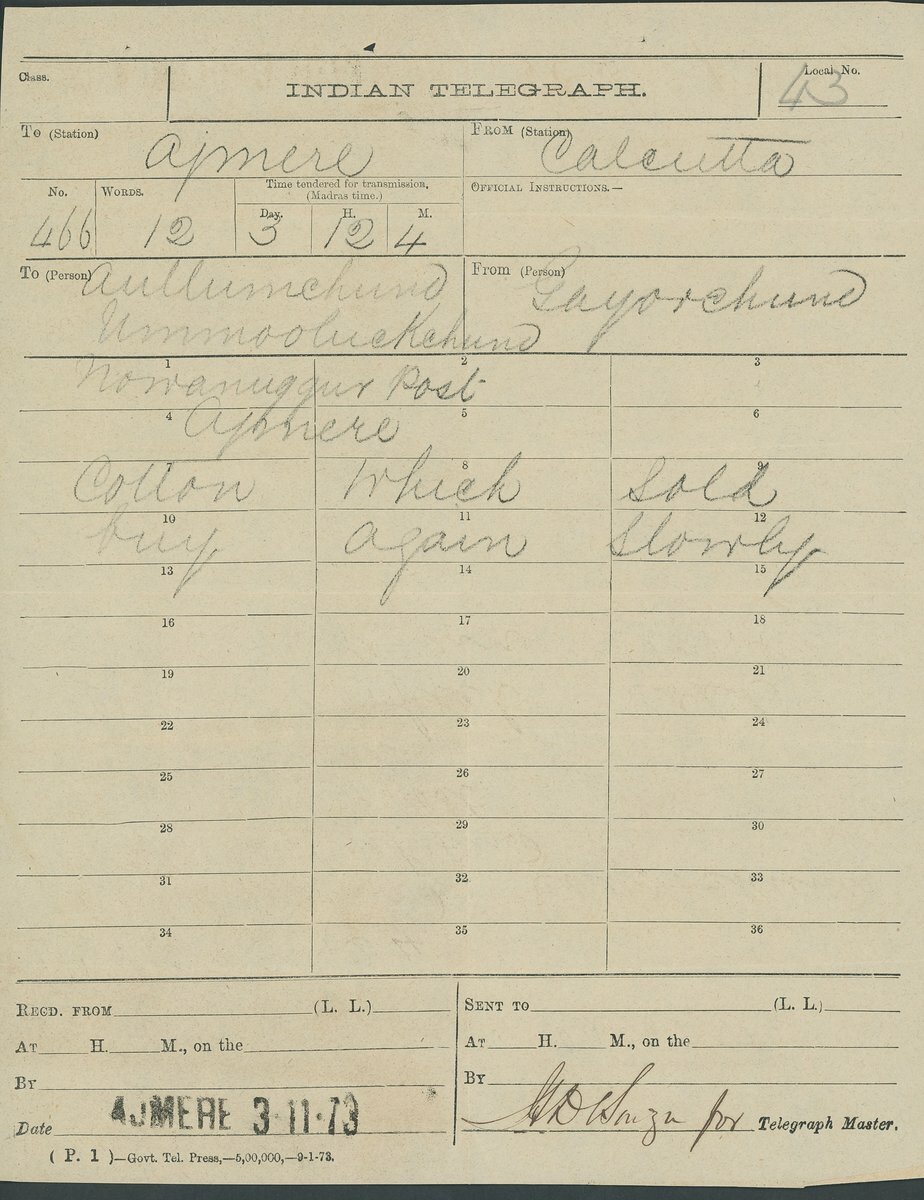 Class.
INDIAN TELEGRAPH.
Local No.
43
To (Station)
Ajmere
From (Station)
Calcutta
No.
Words.
Time tendered for transmission,
(Madras time.)
Day. H. M.
466 12 3 12 4
Official Instructions.—
To (Person)
Aullumchund
Ummooluckchund
From (Person)
Gayorchund
1 2 3
Nowanuggur Post
4 5 6
Ajmere
7 8 9
Cotton which sold
10 11 12
buy again slowly
13 14 15
16 17 18
19 20 21
22 23 24
25 26 27
28 29 30
31 32 33
34 35 36
Recd. from (L. L.)
At H. M., on the
By
Date AJMERE 3-11-73
Sent to (L. L.)
At H. M., on the
By
D'Souza for Telegraph Master.
( P. 1 )—Govt. Tel. Press,—5,00,000,—9-1-73.